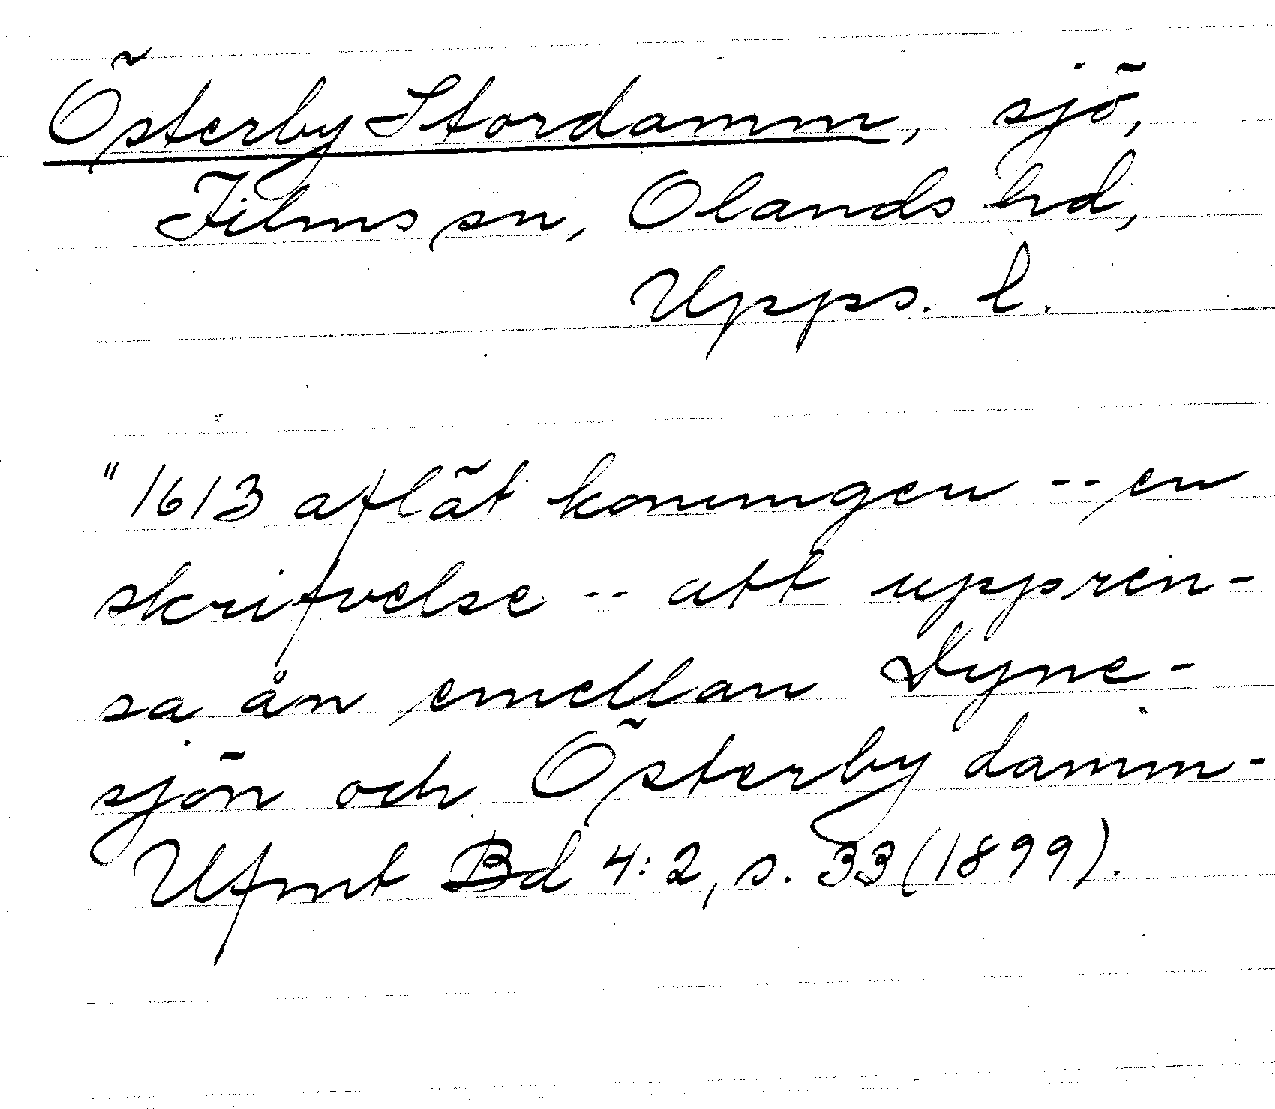 Österby Stordamm, sjö,
Films sn, Olands hd,
Upps. l.
"1613 aflät konungen -- en
skrifvelse -- att uppren-
sa ån emellan Dyne-
sjön och Österby damm-
Ufmt Bd 4:2, s. 33 (1899).